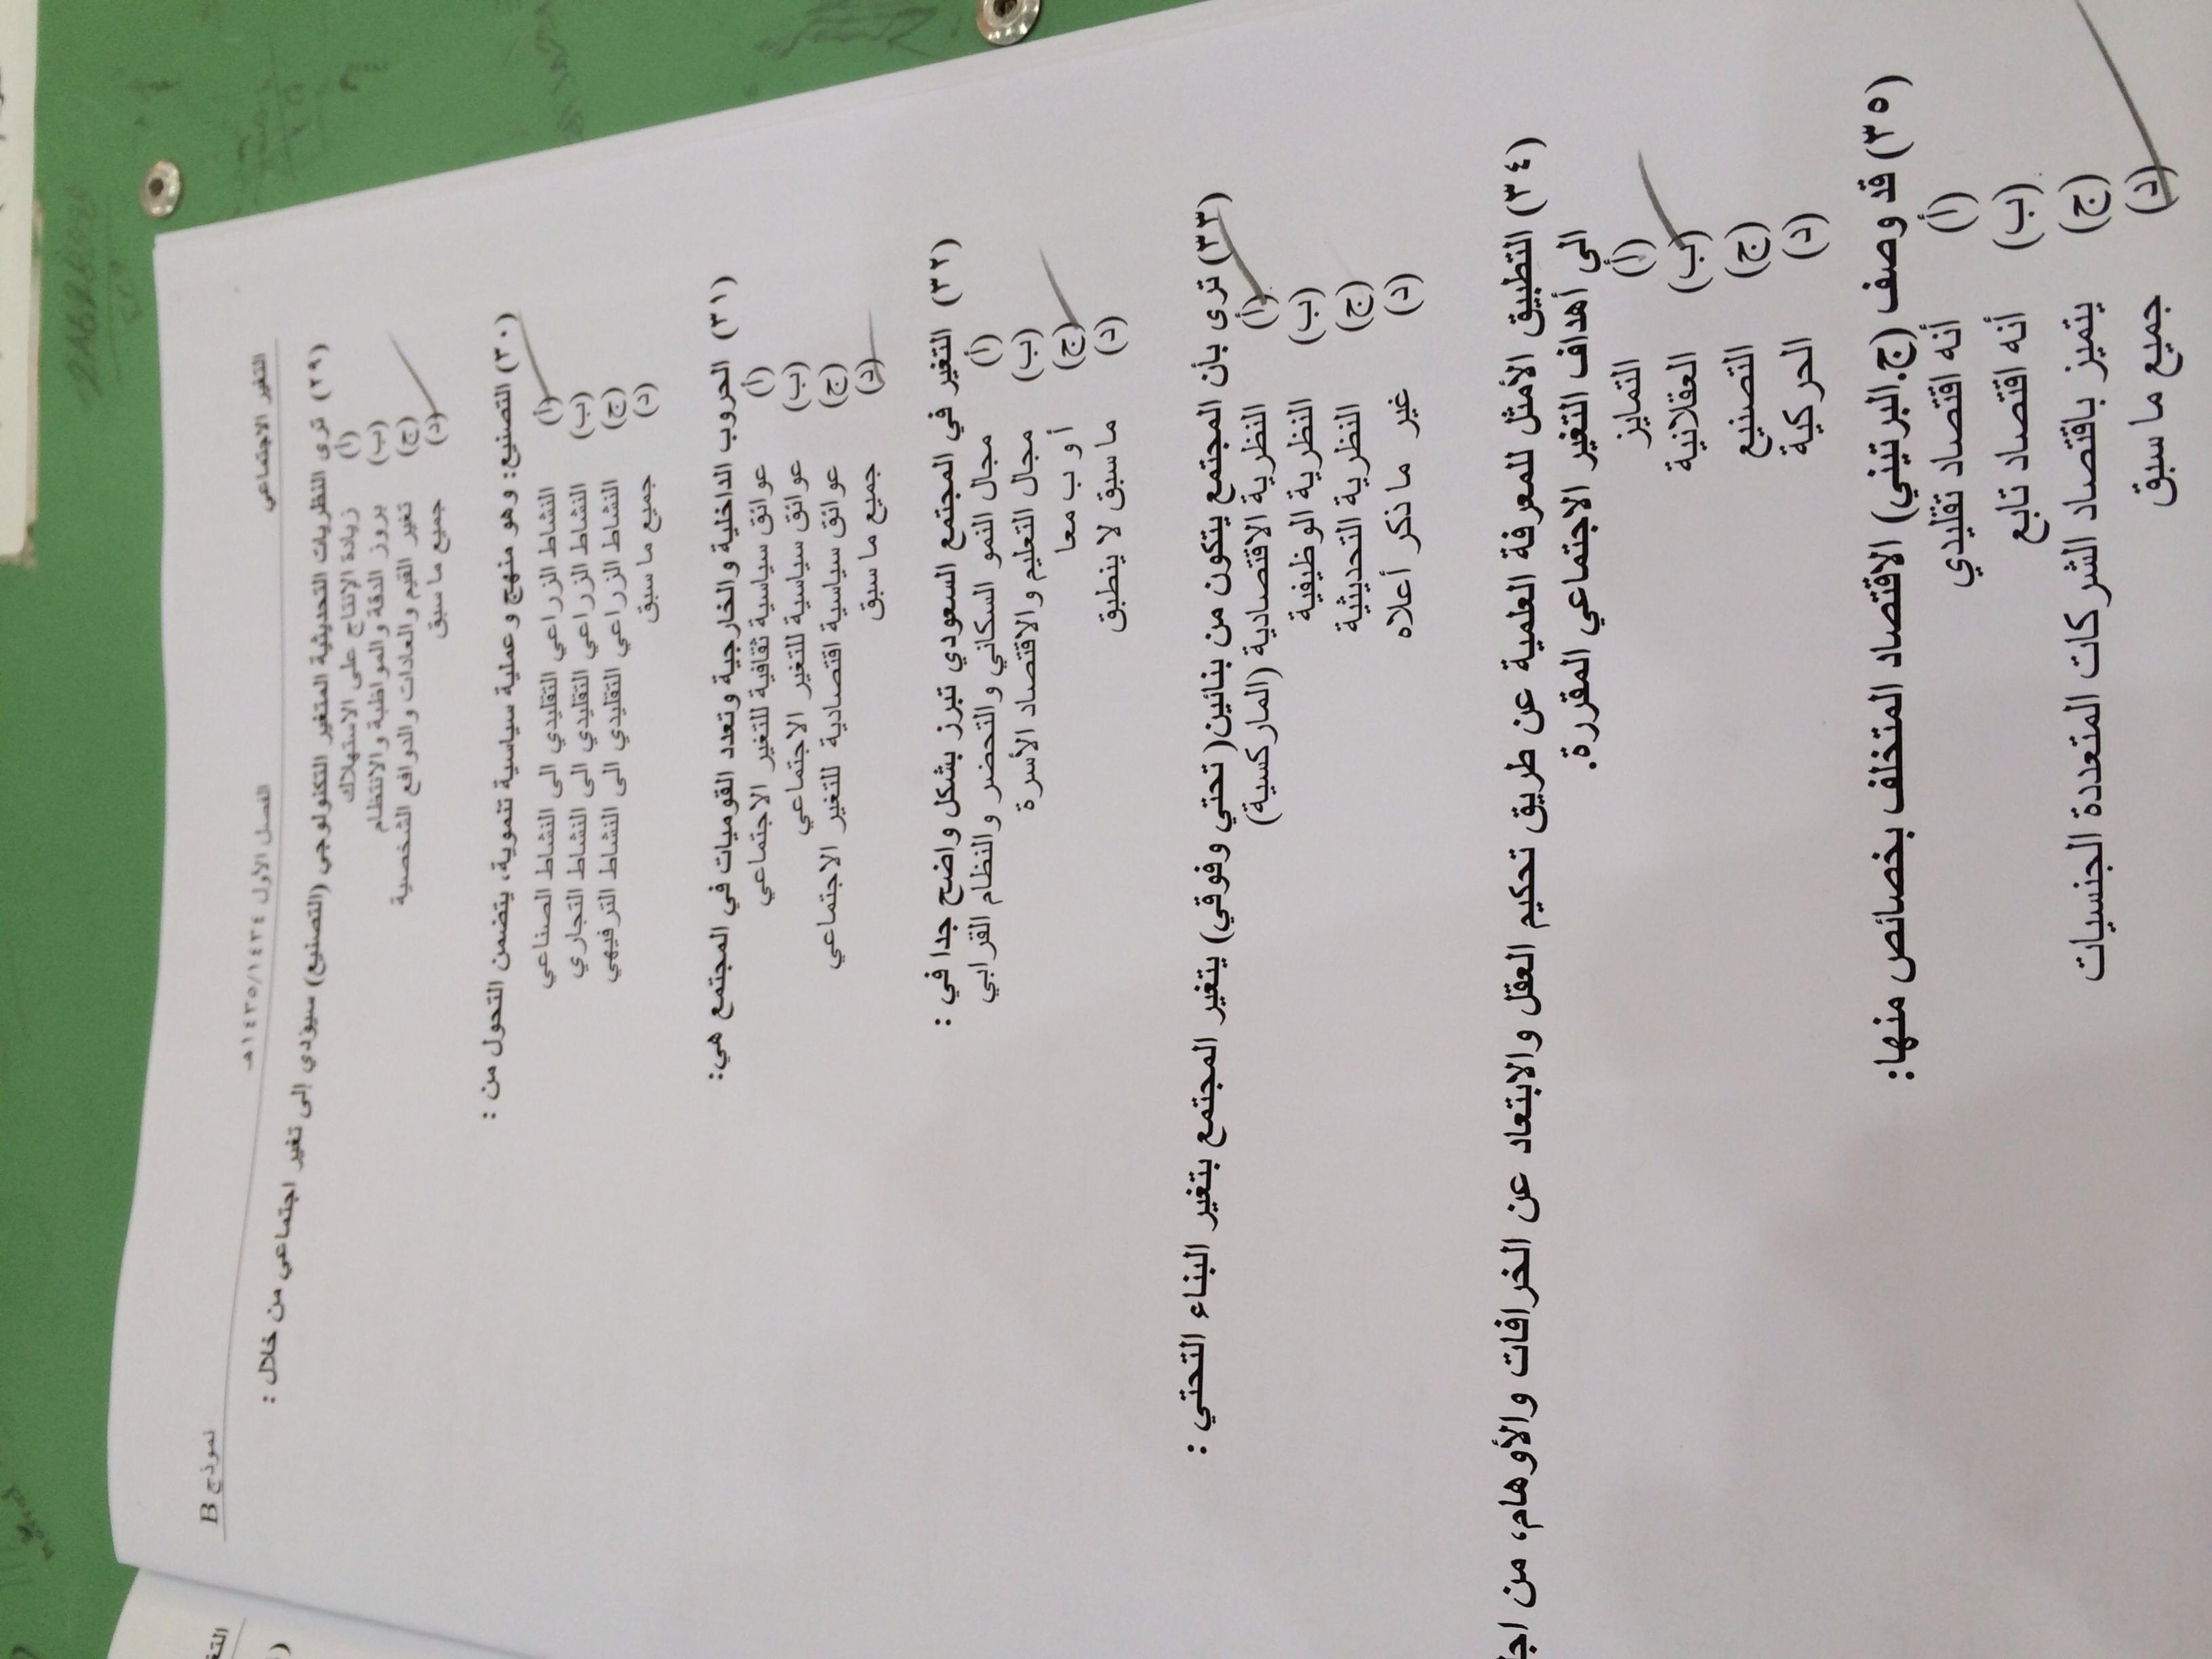 التغير الاجتماعي الفصل الأول ١٤٣٥/١٤٣٤هـ نموذج B
(٢٩) ترى النظريات التحديثية المتغير التكنولوجي (التصنيع) سيؤدي إلى تغير اجتماعي من خلال :
(أ) زيادة الإنتاج على الاستهلاك
(ب) بروز الدقة والمواظبة والانتظام
(ج) تغير القيم والعادات والدوافع الشخصية
(د) جميع ما سبق
(٣٠) التصنيع: وهو منهج وعملية سياسية تنموية، يتضمن التحول من :
(أ) النشاط الزراعي التقليدي الى النشاط الصناعي
(ب) النشاط الزراعي التقليدي الى النشاط التجاري
(ج) النشاط الزراعي التقليدي الى النشاط الترفيهي
(د) جميع ما سبق
(٣١) الحروب الداخلية والخارجية وتعدد القوميات في المجتمع هي:
(أ) عوائق سياسية ثقافية للتغير الاجتماعي
(ب) عوائق سياسية للتغير الاجتماعي
(ج) عوائق سياسية اقتصادية للتغير الاجتماعي
(د) جميع ما سبق
(٣٢) التغير في المجتمع السعودي تبرز بشكل واضح جدا في :
(أ) مجال النمو السكاني والتحضر والنظام القرابي
(ب) مجال التعليم والاقتصاد الأسرة
(ج) أ و ب معا
(د) ما سبق لا ينطبق
(٣٣) ترى بأن المجتمع يتكون من بنائين( تحتي وفوقي) يتغير المجتمع بتغير البناء التحتي :
(أ) النظرية الاقتصادية (الماركسية)
(ب) النظرية الوظيفية
(ج) النظرية التحديثية
(د) غير ما ذكر أعلاه
(٣٤) التطبيق الأمثل للمعرفة العلمية عن طريق تحكيم العقل والابتعاد عن الخرافات والأوهام، من
الى أهداف التغير الاجتماعي المقررة.
(أ) التمايز
(ب) العقلانية
(ج) التصنيع
(د) الحركية
(٣٥) قد وصف (ج.البرتيني) الاقتصاد المتخلف بخصائص منها:
(أ) أنه اقتصاد تقليدي
(ب) أنه اقتصاد تابع
(ج) يتميز باقتصاد الشركات المتعددة الجنسيات
(د) جميع ما سبق